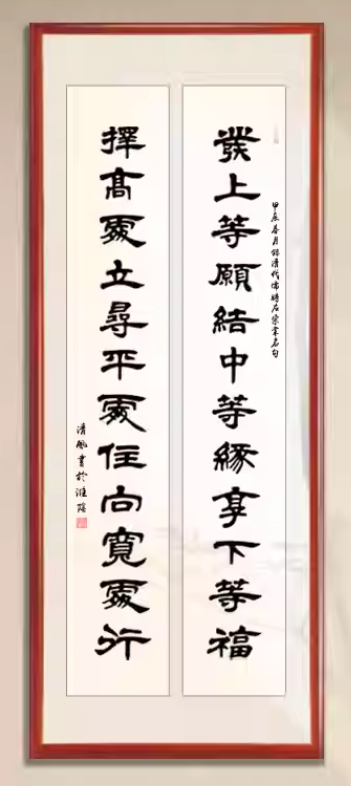 甲辰春月錄清代儒將左宗棠名句
發上等願結中等緣享下等福
擇高處立尋平處住向寬處行
清風書於淮陰